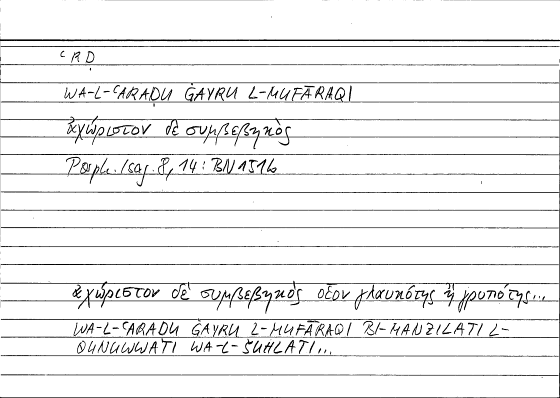 ʿRḌ
WA-L-ʿARAḌU ĠAYRU L-MUFĀRAQI
ἀχώριστον δὲ συμβεβηκὸς
Porph. Isag. 8, 14: BN 151b
ἀχώριστον δὲ συμβεβηκὸς οἷον γλαυκότης ἢ γρυπότης...
WA-L-ʿARAḌU ĠAYRU L-MUFĀRAQI BI-MANZILATI L-
QUNUWWATI WA-L-ŠUHLATI...